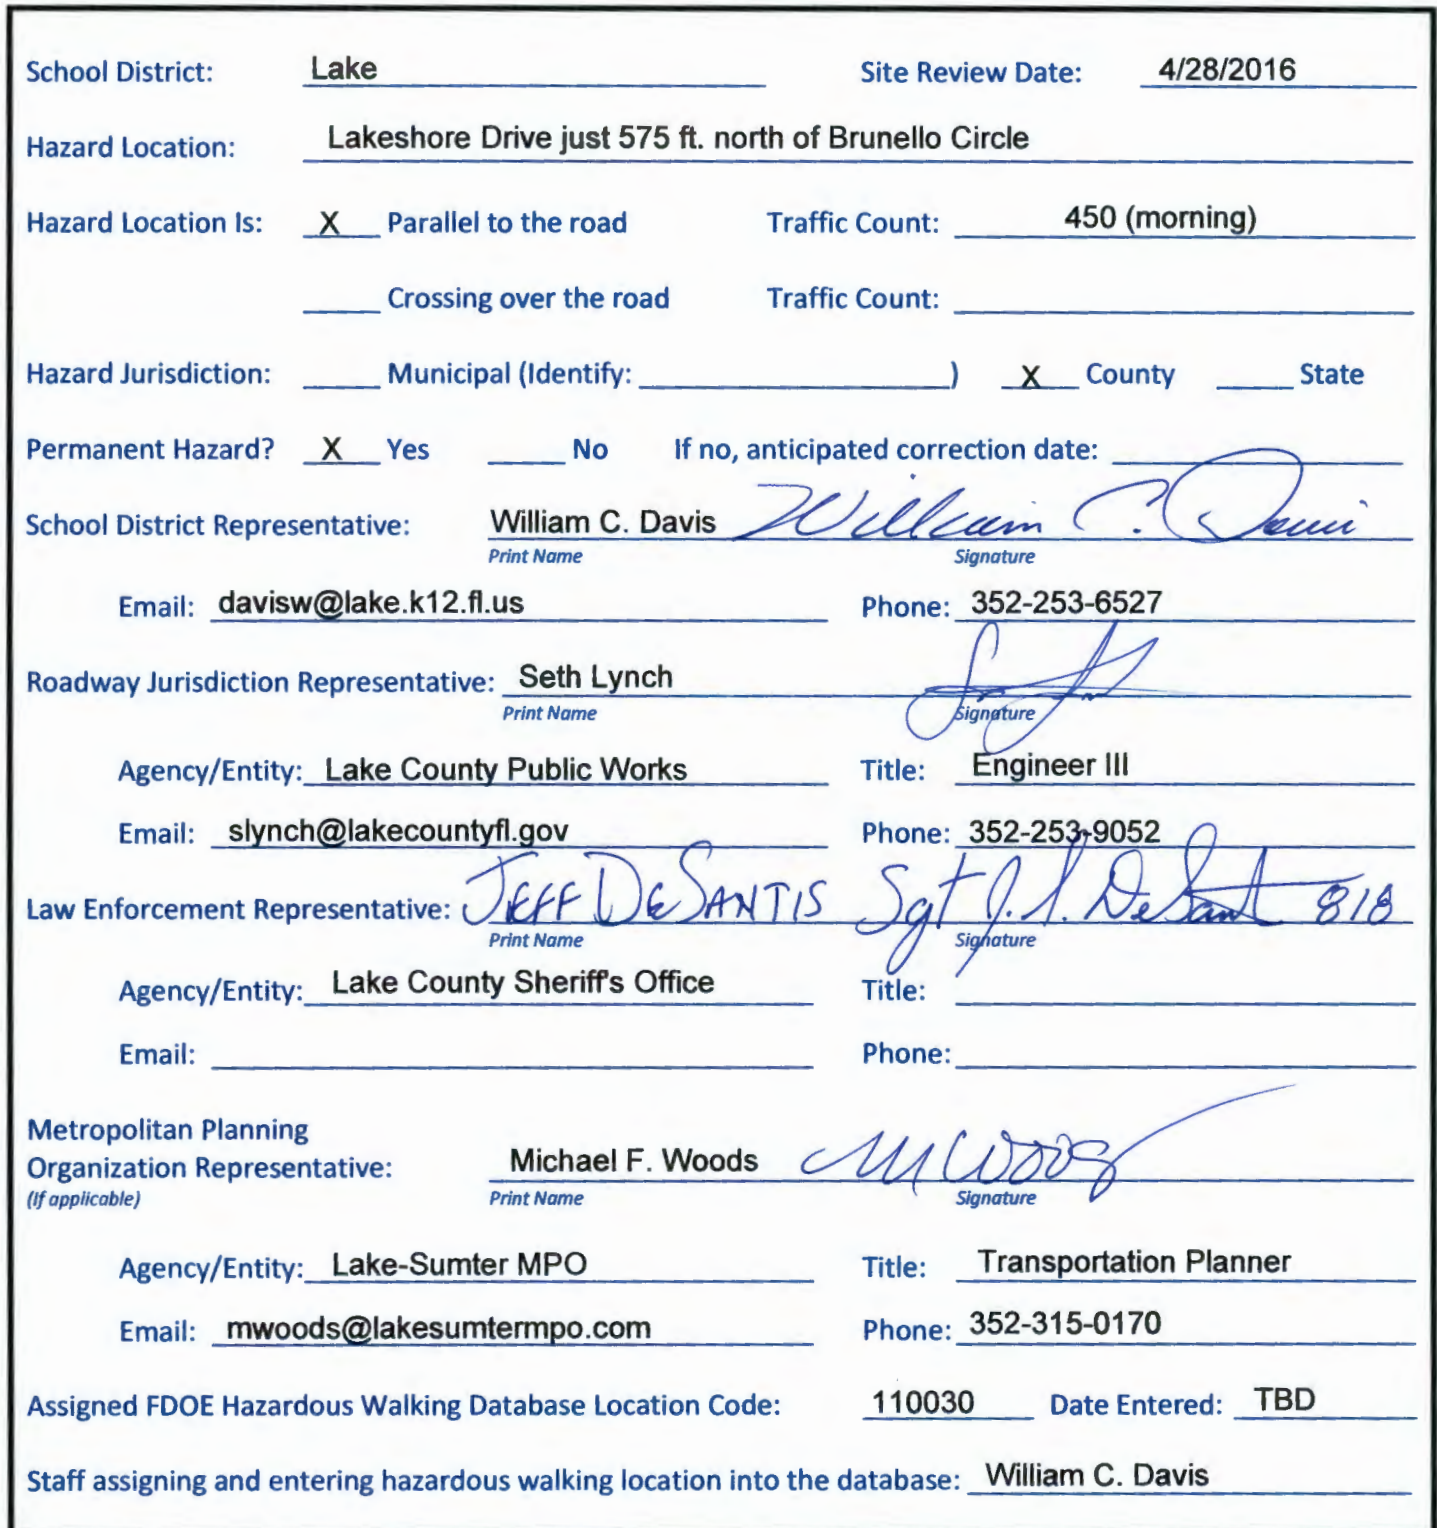 School District: Lake Site Review Date: 4/28/2016
Hazard Location: Lakeshore Drive just 575 ft. north of Brunello Circle
Hazard Location Is: X Parallel to the road Traffic Count: 450 (morning)
____ Crossing over the road Traffic Count: ____
Hazard Jurisdiction: ____ Municipal (Identify: ____) X County ____ State
Permanent Hazard? X Yes ____ No If no, anticipated correction date: ____
School District Representative: William C. Davis William C. Davis
Print Name Signature
Email: davisw@lake.k12.fl.us Phone: 352-253-6527
Roadway Jurisdiction Representative: Seth Lynch
Print Name Signature
Agency/Entity: Lake County Public Works Title: Engineer III
Email: slynch@lakecountyfl.gov Phone: 352-253-9052
Law Enforcement Representative: JEFF DESANTIS Sgt J. S. DeSant 818
Print Name Signature
Agency/Entity: Lake County Sheriff's Office Title: ____
Email: ____ Phone: ____
Metropolitan Planning
Organization Representative: Michael F. Woods MWoods
(If applicable) Print Name Signature
Agency/Entity: Lake-Sumter MPO Title: Transportation Planner
Email: mwoods@lakesumtermpo.com Phone: 352-315-0170
Assigned FDOE Hazardous Walking Database Location Code: 110030 Date Entered: TBD
Staff assigning and entering hazardous walking location into the database: William C. Davis